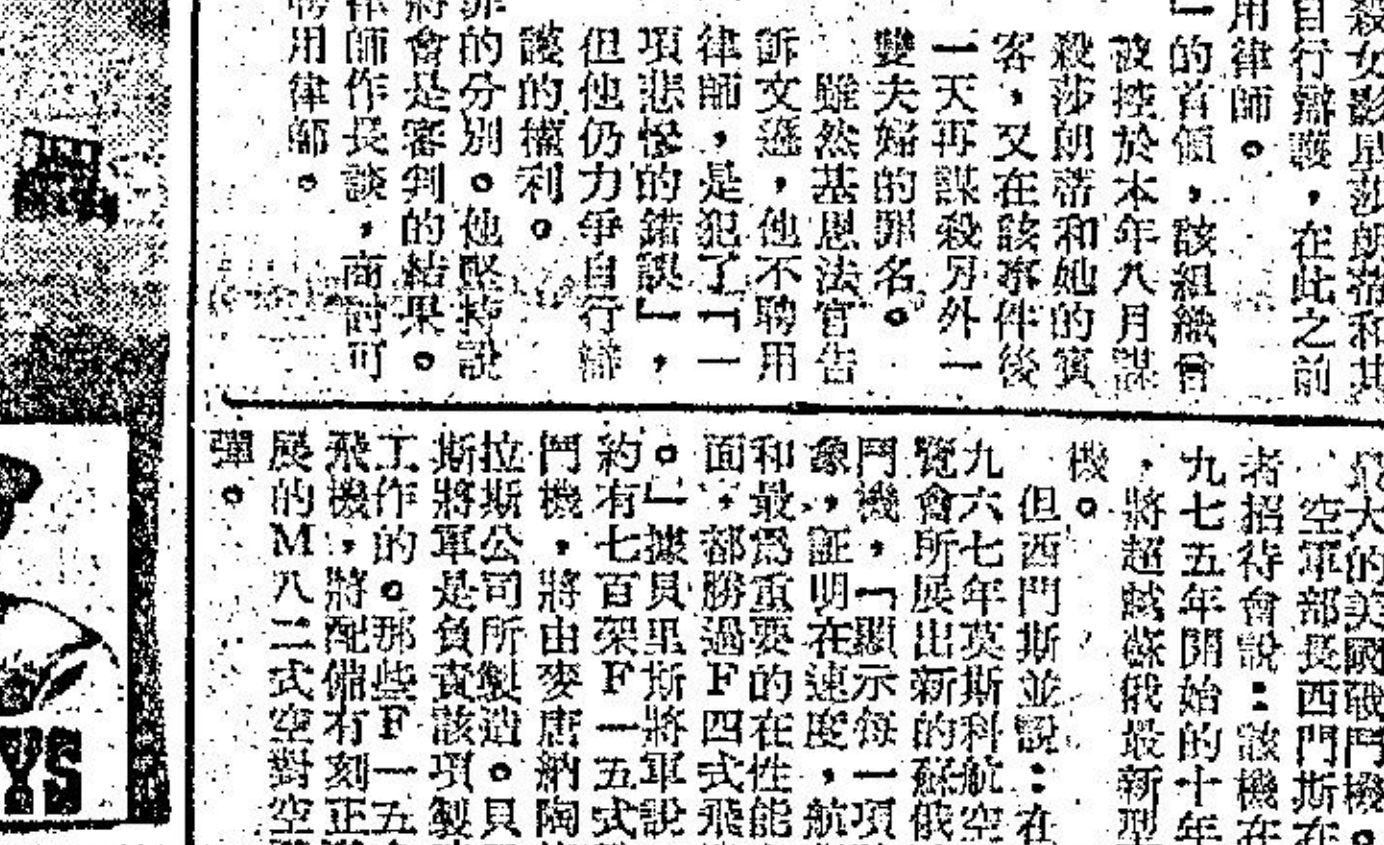 殺女影星莎朗蒂和其
自行辯護，在此之前
用律師。
」的首領，該組織曾
被控於本年八月謀
殺莎朗蒂和她的賓
客，又在該事件後
一天再謀殺另外一
雙夫婦的罪名。
雖然基恩法官告
訴文遜，他不聘用
律師，是犯了「一
項悲慘的錯誤」，
但他仍力爭自行辯
護的權利。
的分別。他堅持說
將會是審判的結果。
律師作長談，商討可
聘用律師。
最大的美國戰鬥機。
空軍部長西門斯在
者招待會說：該機在
九七五年開始的十年
，將超越蘇俄最新型
機。
但西門斯並說：在
九六七年莫斯科航空
覽會所展出新的蘇俄
鬥機，「顯示每一項
象，証明在速度，航
和最爲重要的在性能
面，都勝過F四式飛
。」據貝里斯將軍說
約有七百架F一五式
鬥機，將由麥唐納陶
拉斯公司所製造。貝
斯將軍是負責該項製
工作的。那些F一五
飛機，將配備有刻正
展的M八二式空對空
彈。
YS